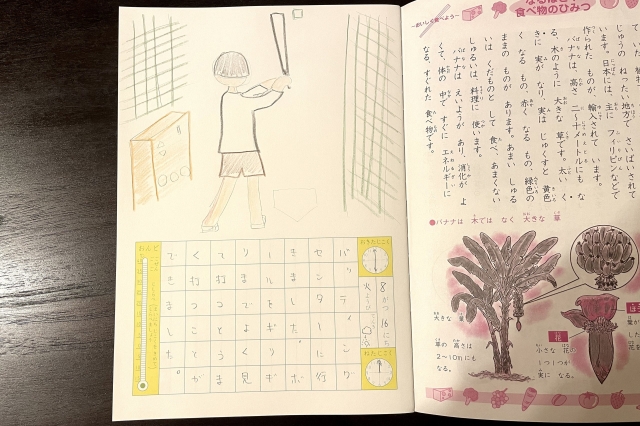 〜おいしく食べよう〜
食べ物のひみつ
じゅうの ねったい地方で さいばいされて
います。日本には、主に フィリピンなどで
作られた ものが、輸入されて います。
バナナは、高さ 二〜十メートルにも な
る、木のように 大きな 草です。太い く
きに 実が なり、実は じゅくすと 黄色
く なる もの、赤く なる もの、緑色の
ままの ものが あります。あまい しゅる
いは くだものと して 食べ、あまくない
しゅるいは、料理に 使います。
バナナは えいようが あり、消化が よ
くて、体の 中で すぐに エネルギーに
なる、すぐれた 食べ物です。
●バナナは 木では なく 大きな 草
大きな 葉
草の 高さは
2〜10mにも
なる。
花
小さな 花の
1つ1つが
実に なる。
おきたじこく
8がつ 16にち
火ようび
ねたじこく
バッティング
センターに行
きました。ボ
ールをぎりぎ
りまでよく見
て打つとうま
く打つことが
できました。
おんど